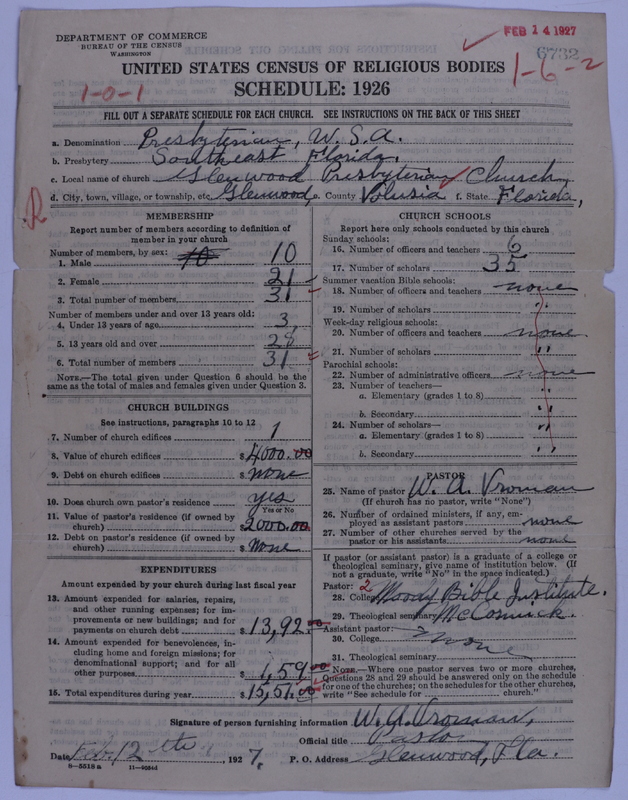 DEPARTMENT OF COMMERCE
BUREAU OF THE CENSUS
WASHINGTON
FEB 14 1927
6732
UNITED STATES CENSUS OF RELIGIOUS BODIES
1-6-2
1-0-1
SCHEDULE: 1926
FILL OUT A SEPARATE SCHEDULE FOR EACH CHURCH. SEE INSTRUCTIONS ON THE BACK OF THIS SHEET
a. Denomination Presbyterian, U.S.A.
b. Presbytery Southeast Florida.
c. Local name of church Glenwood Presbyterian Church
d. City, town, village, or township, etc. Glenwood e. County Volusia f. State Florida,
R
MEMBERSHIP
Report number of members according to definition of
member in your church
Number of members, by sex:
1. Male 10 10
2. Female 21
3. Total number of members 31
Number of members under and over 13 years old:
4. Under 13 years of age 3
5. 13 years old and over 28
6. Total number of members 31
NOTE.—The total given under Question 6 should be the
same as the total of males and females given under Question 3.
CHURCH BUILDINGS
See instructions, paragraphs 10 to 12
7. Number of church edifices 1
8. Value of church edifices $4000.00
9. Debt on church edifices $None
10. Does church own pastor's residence yes
Yes or No
11. Value of pastor's residence (if owned by
church) $2000.00
12. Debt on pastor's residence (if owned by
church) $None
EXPENDITURES
Amount expended by your church during last fiscal year
13. Amount expended for salaries, repairs,
and other running expenses; for im-
provements or new buildings; and for
payments on church debt $13,92.00
14. Amount expended for benevolences, in-
cluding home and foreign missions; for
denominational support; and for all
other purposes $1,59.00
15. Total expenditures during year $15,51.00
CHURCH SCHOOLS
Report here only schools conducted by this church
Sunday schools:
16. Number of officers and teachers 6
17. Number of scholars 35
Summer vacation Bible schools:
18. Number of officers and teachers none
19. Number of scholars "
Week-day religious schools:
20. Number of officers and teachers none
21. Number of scholars "
Parochial schools:
22. Number of administrative officers none
23. Number of teachers—
a. Elementary (grades 1 to 8) "
b. Secondary "
24. Number of scholars—
a. Elementary (grades 1 to 8) "
b. Secondary "
PASTOR
25. Name of pastor W. A. Vroman
(If church has no pastor, write "None")
26. Number of ordained ministers, if any, em-
ployed as assistant pastors none
27. Number of other churches served by the
pastor or his assistants none
If pastor (or assistant pastor) is a graduate of a college or
theological seminary, give name of institution below. (If
not a graduate, write "No" in the space indicated.)
Pastor: 2
28. College Moody Bible Institute.
29. Theological seminary McCormick
Assistant pastor:
30. College none
31. Theological seminary
NOTE.—Where one pastor serves two or more churches,
Questions 28 and 29 should be answered only on the schedule
for one of the churches; on the schedules for the other churches,
write "See schedule for church."
Signature of person furnishing information W. A. Vroman,
Official title Pastor
Date Feb. 12th 1927. P. O. Address Glenwood, Fla.
8—5518 a 11—9564d